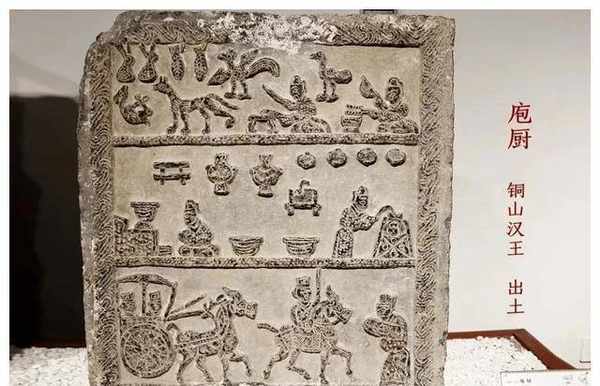 庖厨
铜山汉王 出土